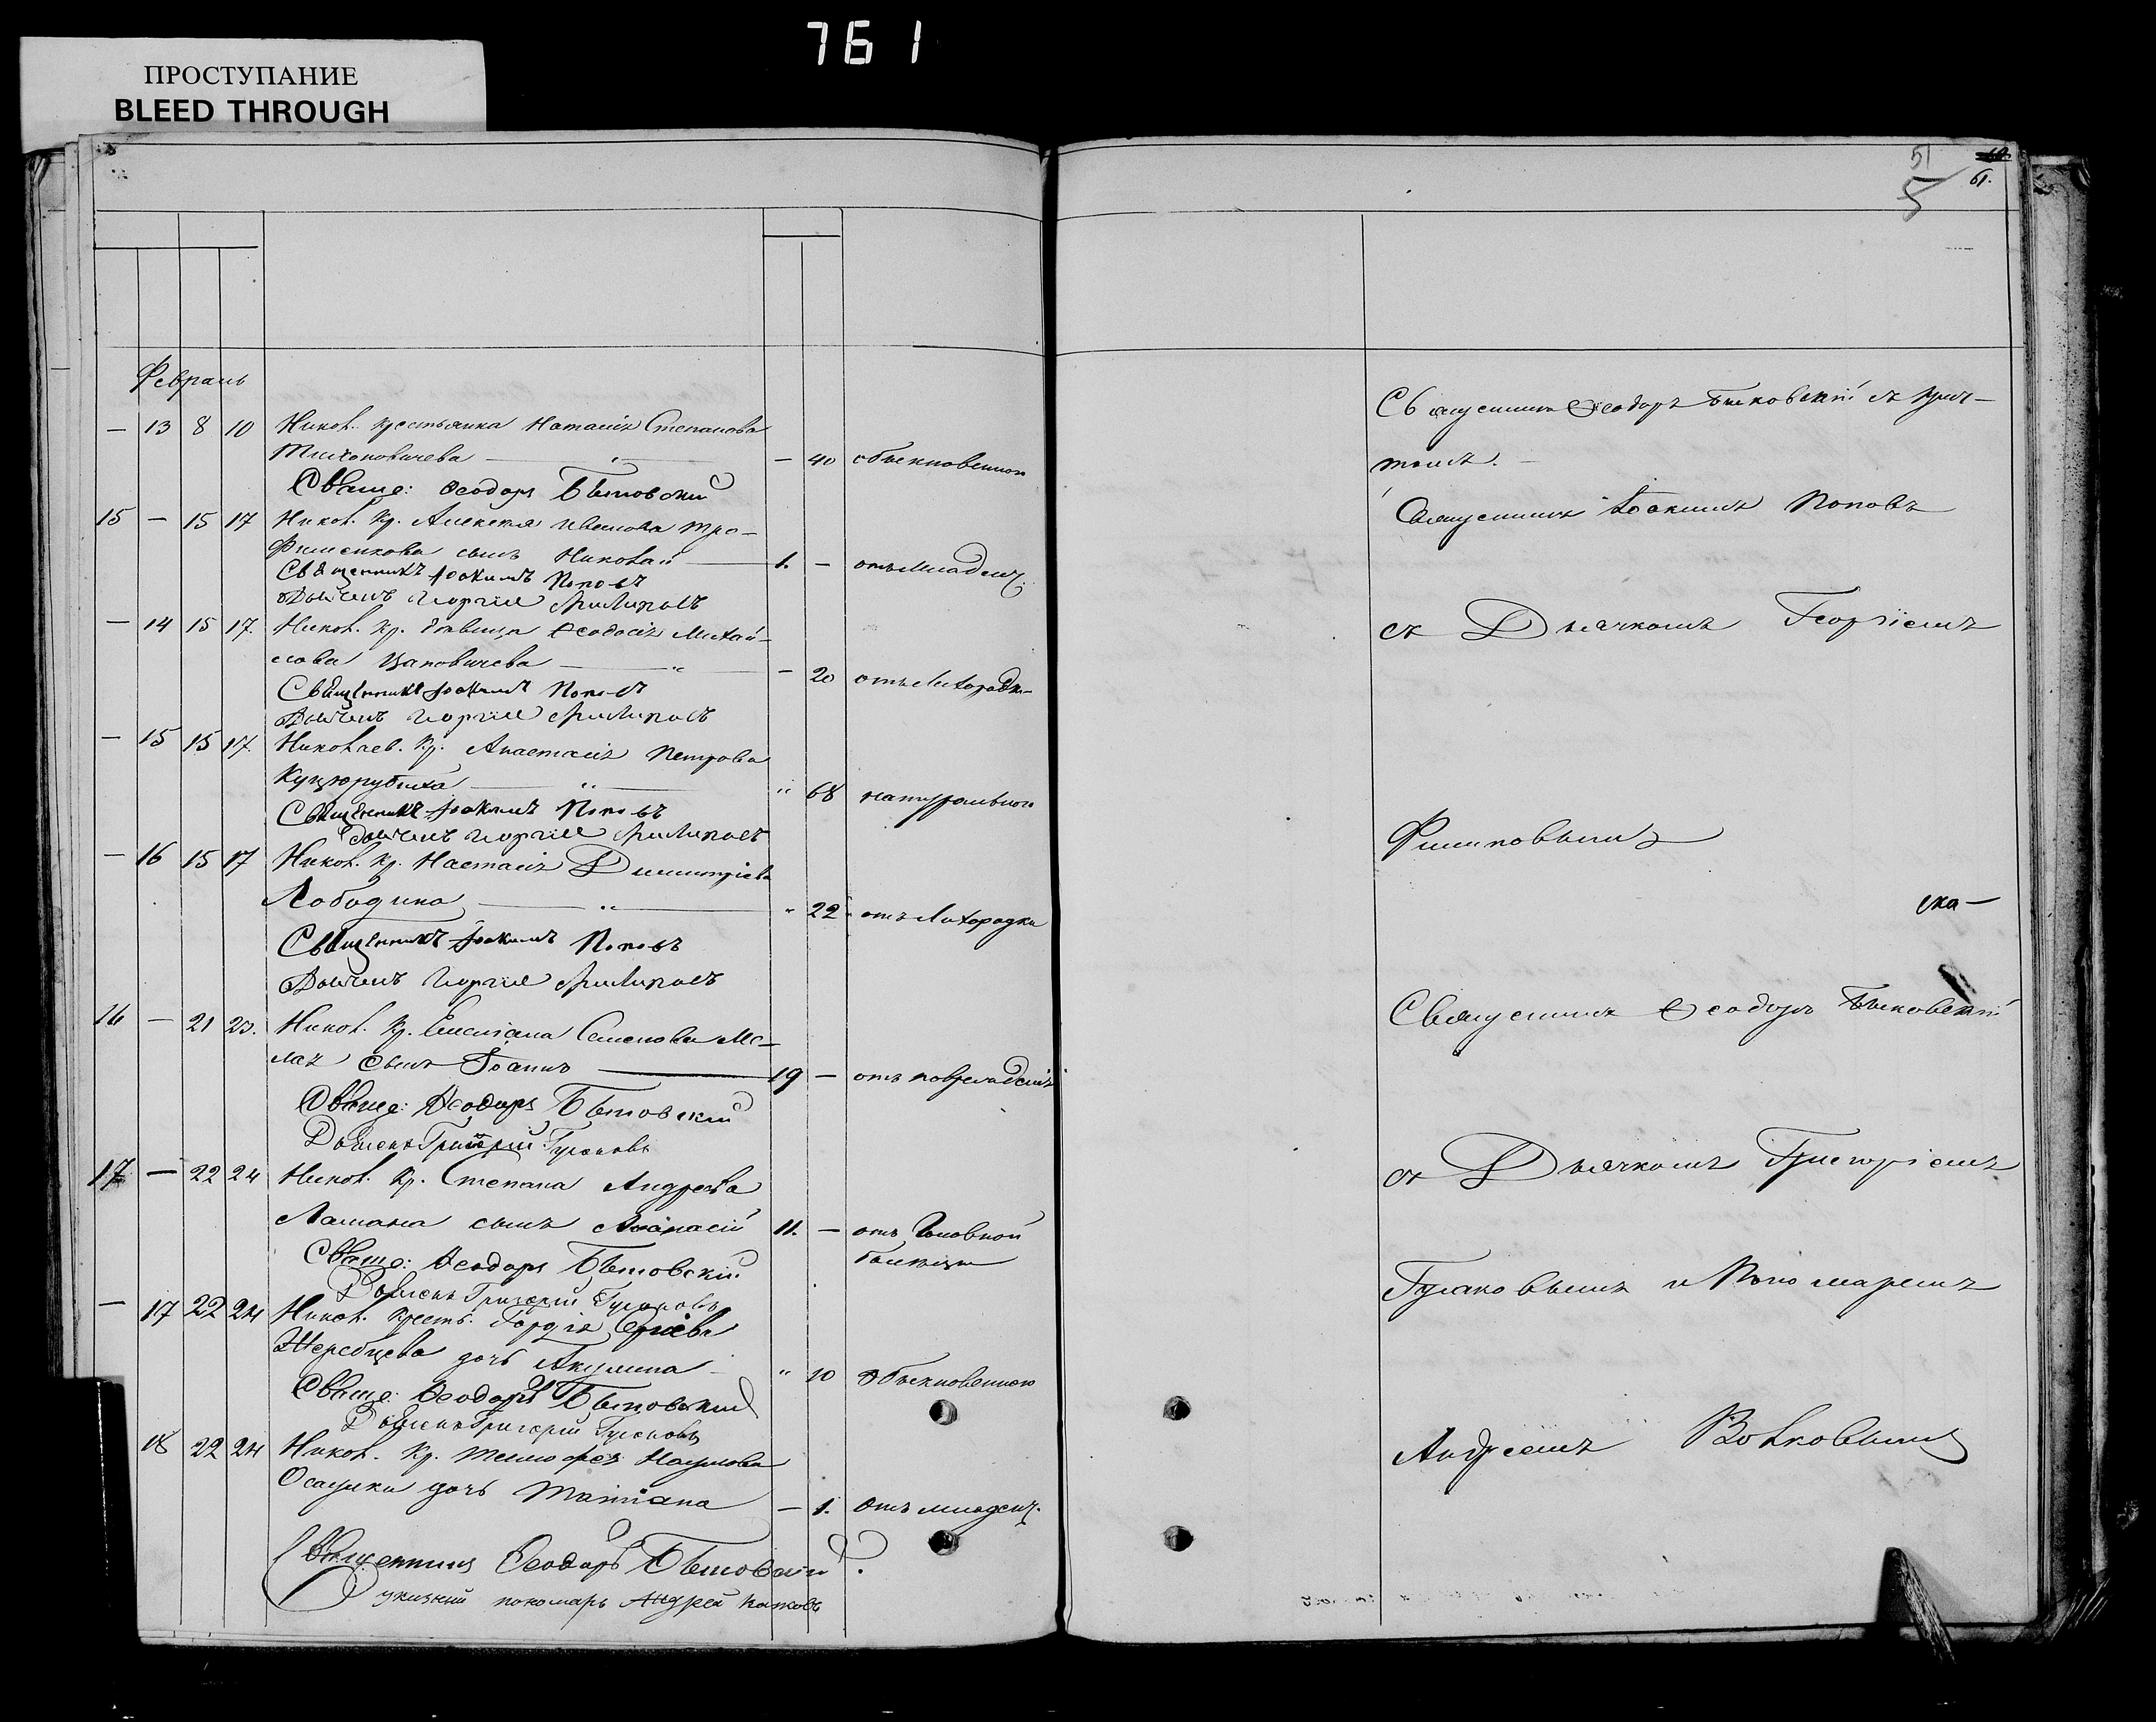 761
ПРОСТУПАНИЕ
BLEED THROUGH
51
5
61.
Февраль
— 13 8 10 Никол. крестьянка Наталія Степанова
Тихоновичева — " — — 40 обыкновенною
Свяще: Ѳеодоръ Быковскій
15 — 15 17 Никол. Кр. Алексѣя Иванова Тро-
фименкова сынъ Николай — 1. — отъ младенч.
Священникъ Іоакимъ Поповъ
Дьячекъ Георгій Филиповъ
— 14 15 17. Никол. Кр. дѣвица Ѳеодосія Михай-
лова Цаповичева — " — — 20 отъ Лихорадки
Священникъ Іоакимъ Поповъ
Дьячекъ Георгій Филиповъ
— 15 15 17. Николаев. Кр. Анастасія Петрова
Куцюрубиха — " — " 68 натуральною
Священникъ Іоакимъ Поповъ
Дьячекъ Георгій Филиповъ
— 16 15 17 Никол. Кр. Настасія Димитріева
Лободина — " — " 22 отъ Лихорадки
Священникъ Іоакимъ Поповъ
Дьячекъ Георгій Филиповъ
16 — 21 23. Никол. Кр. Емеліана Семенова Ме-
лая сынъ Іоаннъ — 19 — отъ
Свяще: Ѳеодоръ Быковскій
Дьячекъ Григорій Гулаковъ
17 — 22 24 Никол. Кр. Степана Андреева
Ламана сынъ Аѳанасій 11. — отъ Головной
болѣзни
Свяще: Ѳеодоръ Быковскій
Дьячекъ Григорій Гулаковъ
— 17 22 24 Никол. Крест. Гордія
Жеребцева дочь Акулина — " 10 Обыкновенною
Свяще: Ѳеодоръ Быковскій
Дьячекъ Григорій Гулаковъ
18 22 24 Никол. Кр. Тимофея Наумова
Осадчки дочь Татіана — 1. отъ младенч.
Священникъ Ѳеодоръ Быковскій
указный пономарь Андрей Волковъ
Священникъ Ѳеодоръ Быковскій съ прич-
томъ. —
Священникъ Іоакимъ Поповъ
съ Дьячкомъ Георгіемъ
Филиповымъ
ска —
Священникъ Ѳеодоръ Быковскій
съ Дьячкомъ Григоріемъ
Гулаковымъ и Пономаремъ
Андреемъ Волковымъ